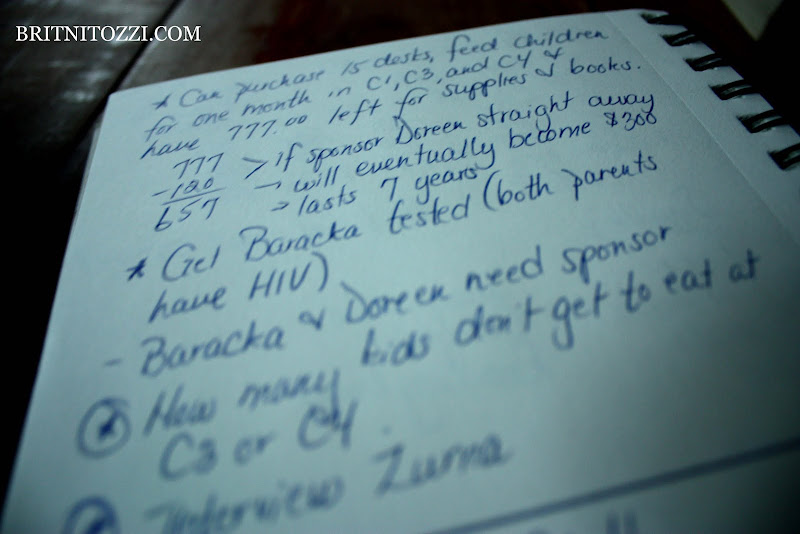 BRITNITOZZI.COM
* Can purchase 15 desks, feed children
for one month in C1, C3, and C4 &
have 777.00 left for supplies & books.
777 > if sponsor Doreen straight away
-120 → will eventually become $300
657 > lasts 7 years
* Get Baracka tested (both parents
have HIV)
- Baracka & Doreen need sponsor
* How many kids don't get to eat at
C3 or C4.
* Interview Zurna